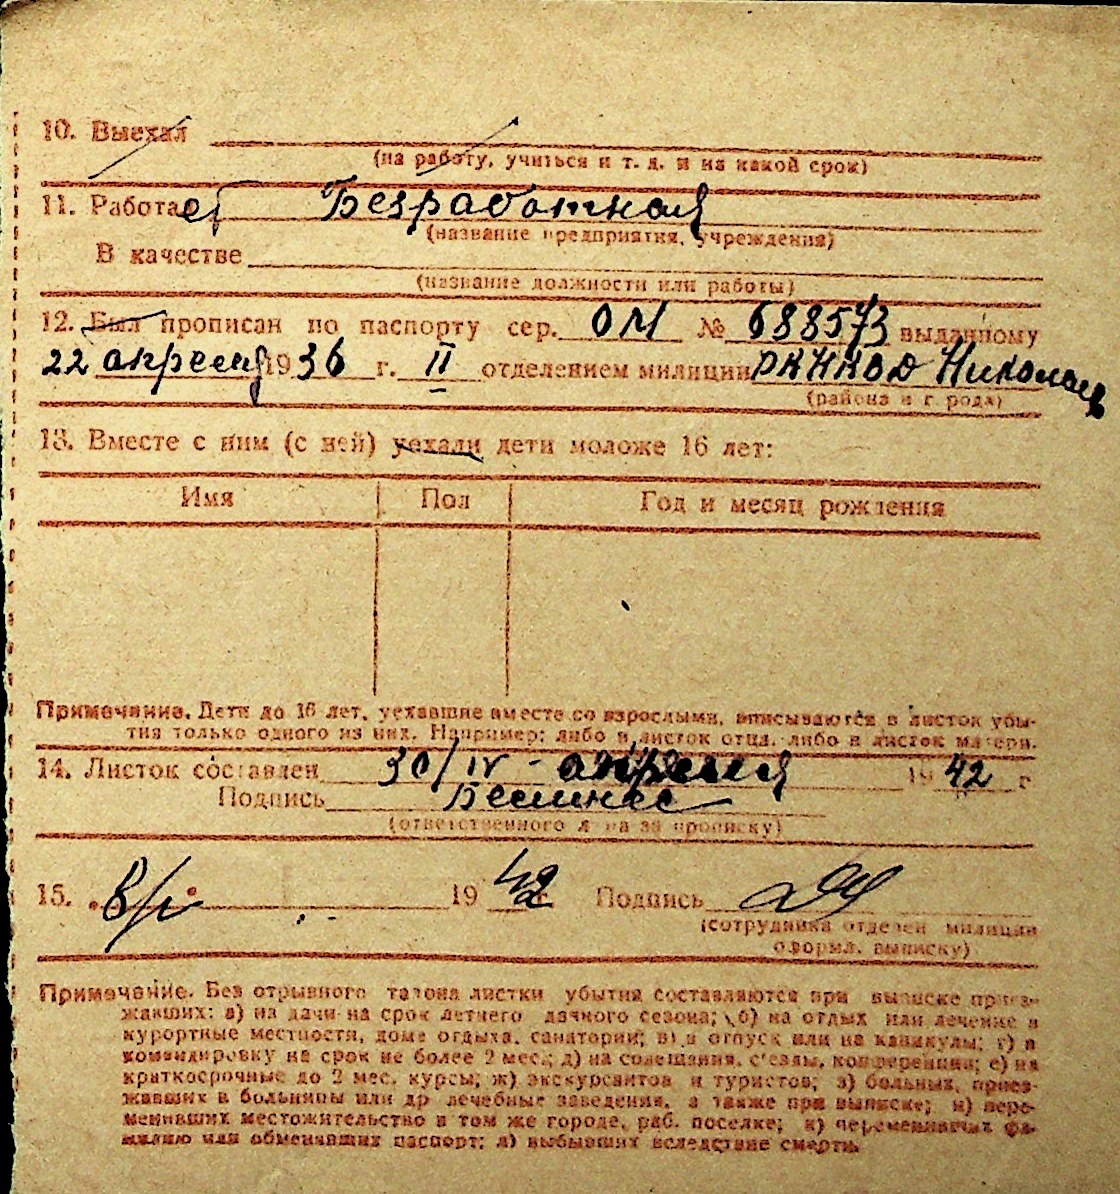 10. Выехал
(на работу, учиться и т. д. и на какой срок)
11. Работает Безработная
(название предприятия, учреждения)
В качестве
(название должности или работы)
12. Был прописан по паспорту сер. ОМ № 688573 выданному
22 апреля 1936 г. II отделением милиции
(района и города)
13. Вместе с ним (с ней) уехали дети моложе 16 лет:
Имя Пол Год и месяц рождения
Примечание. Дети до 16 лет, уехавшие вместе со взрослыми, вписываются в листок убы-
тия только одного из них. Например: либо в листок отца, либо в листок матери.
14. Листок составлен 30/IV - апреля 1942 г
Подпись
(ответственного л на за прописку)
15. 1942 Подпись
(сотрудника отделен милиции
оформл. выписку)
Примечание. Без отрывного талона листки убытия составляются при выписке приез-
жавших: а) на дачи на срок летнего дачного сезона; б) на отдых или лечение в
курортные местности, дома отдыха, санатории; в) в отпуск или на каникулы; г) в
командировку на срок не более 2 мес.; д) на совещания, с'езды, конференции; е) на
краткосрочные до 2 мес. курсы; ж) экскурсантов и туристов; з) больных, приез-
жавших в больницы или др лечебные заведения, а также при выписке; и) пере-
менивших местожительство в том же городе, раб. поселке; к) переменивших фа-
милию или обменявших паспорт; л) выбывших вследствие смерти.